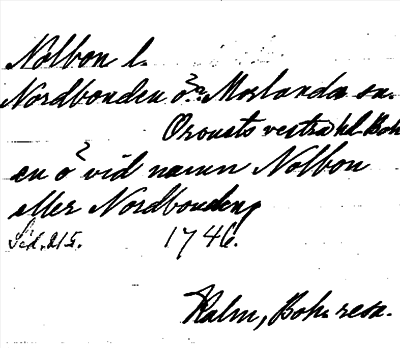 Nolbon l.
Nordbonden ö. Morlanda sn.
Orousts vestra hd. Boh
en ö vid namn Nolbon
eller Nordbonden,
Sid. 215. 1746.
Kalm, Boh. resa.